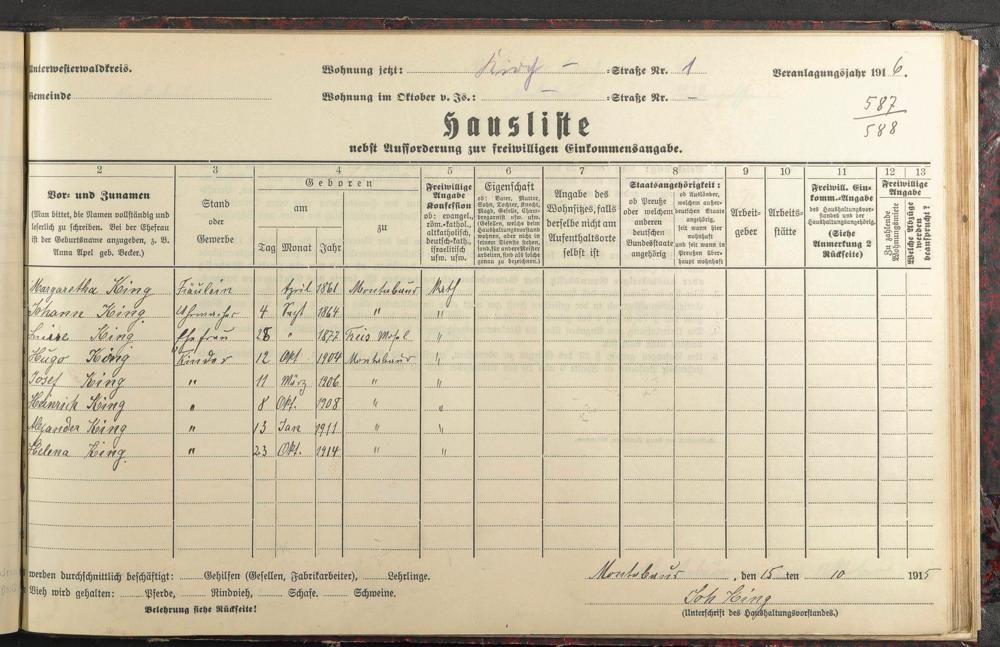 Unterwesterwaldkreis.
Wohnung jetzt: Kirch – =Straße Nr. 1
Veranlagungsjahr 1916.
Gemeinde
Wohnung im Oktober v. Js.: – =Straße Nr. –
587
588
Hausliste
nebst Aufforderung zur freiwilligen Einkommensangabe.
2 3 4 5 6 7 8 9 10 11 12 13
Vor- und Zunamen
(Man bittet, die Namen vollständig und
leserlich zu schreiben. Bei der Ehefrau
ist der Geburtsname anzugeben, z. B.
Anna Apel geb. Becker.)
Stand
oder
Gewerbe
Geboren
am
zu
Tag Monat Jahr
Freiwillige
Angabe
Konfession
ob: evangel.,
röm.-kathol.,
altkatholisch,
deutsch-kath.,
israelitisch
usw. usw.
Eigenschaft
ob: Vater, Mutter,
Sohn, Tochter, Knecht,
Magd, Geselle, Cham-
bregarnist usw. usw.
(Gesellen, welche beim
Haushaltungsvorstand
wohnen, aber nicht in
seinem Dienste stehen,
sond. für andere Meister
arbeiten, sind als solche
genau zu bezeichnen.)
Angabe des
Wohnsitzes, falls
derselbe nicht am
Aufenthaltsorte
selbst ist
Staatsangehörigkeit:
ob Preuße
oder welchem
anderen
deutschen
Bundesstaate
angehörig
ob Ausländer,
welchem außer-
deutschen Staate
angehörig,
seit wann hier
wohnhaft
und seit wann in
Preußen über-
haupt wohnhaft
Arbeit-
geber
Arbeits-
stätte
Freiwill. Ein-
komm.-Angabe
des Haushaltungsvor-
standes und der
Haushaltungsangehörig.
(Siehe
Anmerkung 2
Rückseite)
Freiwillige
Angabe
Zu zahlende
Wohnungsmiete
Welche Abzüge
werden
beansprucht?
Margaretha King Fräulein April 1861 Montabaur Kath
Johann King Uhrmacher 4 Sept 1864 " "
Luise King Ehefrau 28 " 1877 Treis Mosel "
Hugo King Kinder 12 Okt. 1904 Montabaur "
Josef King " 11 März 1906 " "
Heinrich King " 8 Okt. 1908 " "
Alexander King " 13 Jan 1911 " "
Helena King " 23 Okt. 1914 " "
werden durchschnittlich beschäftigt: Gehilfen (Gesellen, Fabrikarbeiter), Lehrlinge.
Vieh wird gehalten: Pferde, Rindvieh, Schafe. Schweine.
Belehrung siehe Rückseite!
Montabaur, den 15 ten 10 1915
Joh King
(Unterschrift des Haushaltungsvorstandes.)